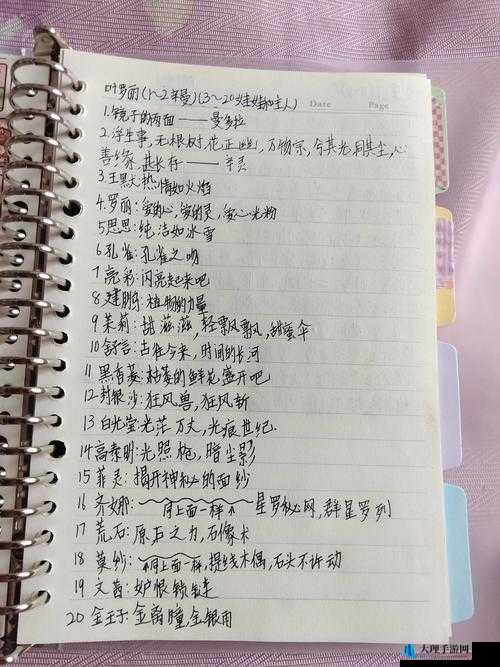 叶罗丽(1~2辛曼)(3~20娃娃加主人)
Date Page
1.镜子的两面——曼多拉
2.浮生事,无根树,花正幽,万物宗,合其光同其尘,心
善缘,甚长存——辛灵
3.王默:大热情如火焰
4.罗丽:爱的心,爱的灵,爱心光粉
5.思思:纯洁如冰雪
6.孔雀:孔雀之吻
7.亮彩:闪亮起来吧
8.建鹏:植物的力量
9.茉莉:甜滋滋,轻飘飘,甜蜜伞
10.舒言:古往今来,时间的长河
11黑香菱:枯萎的鲜花盛开吧
12.封银沙:狂风兽,狂风斩
13白光莹:光茫万丈,光痕世纪.
14高泰明:光照枪,暗尘影
15菲灵:揭开神秘的面纱
16齐娜:同上面一样↑星罗秘网,群星罗列
17荒石:原石之力,石像术
18莫纱:↑同上面一样,提线木偶,石头不许动
19文茜:妒恨锁链
20金王子:金离瞳,金银雨
大理手游网